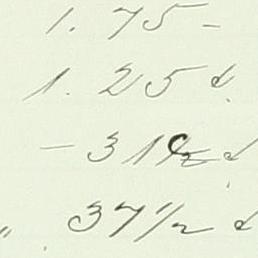 1.75 –
1.25 d.
– 31½ d
„ . 37½ d